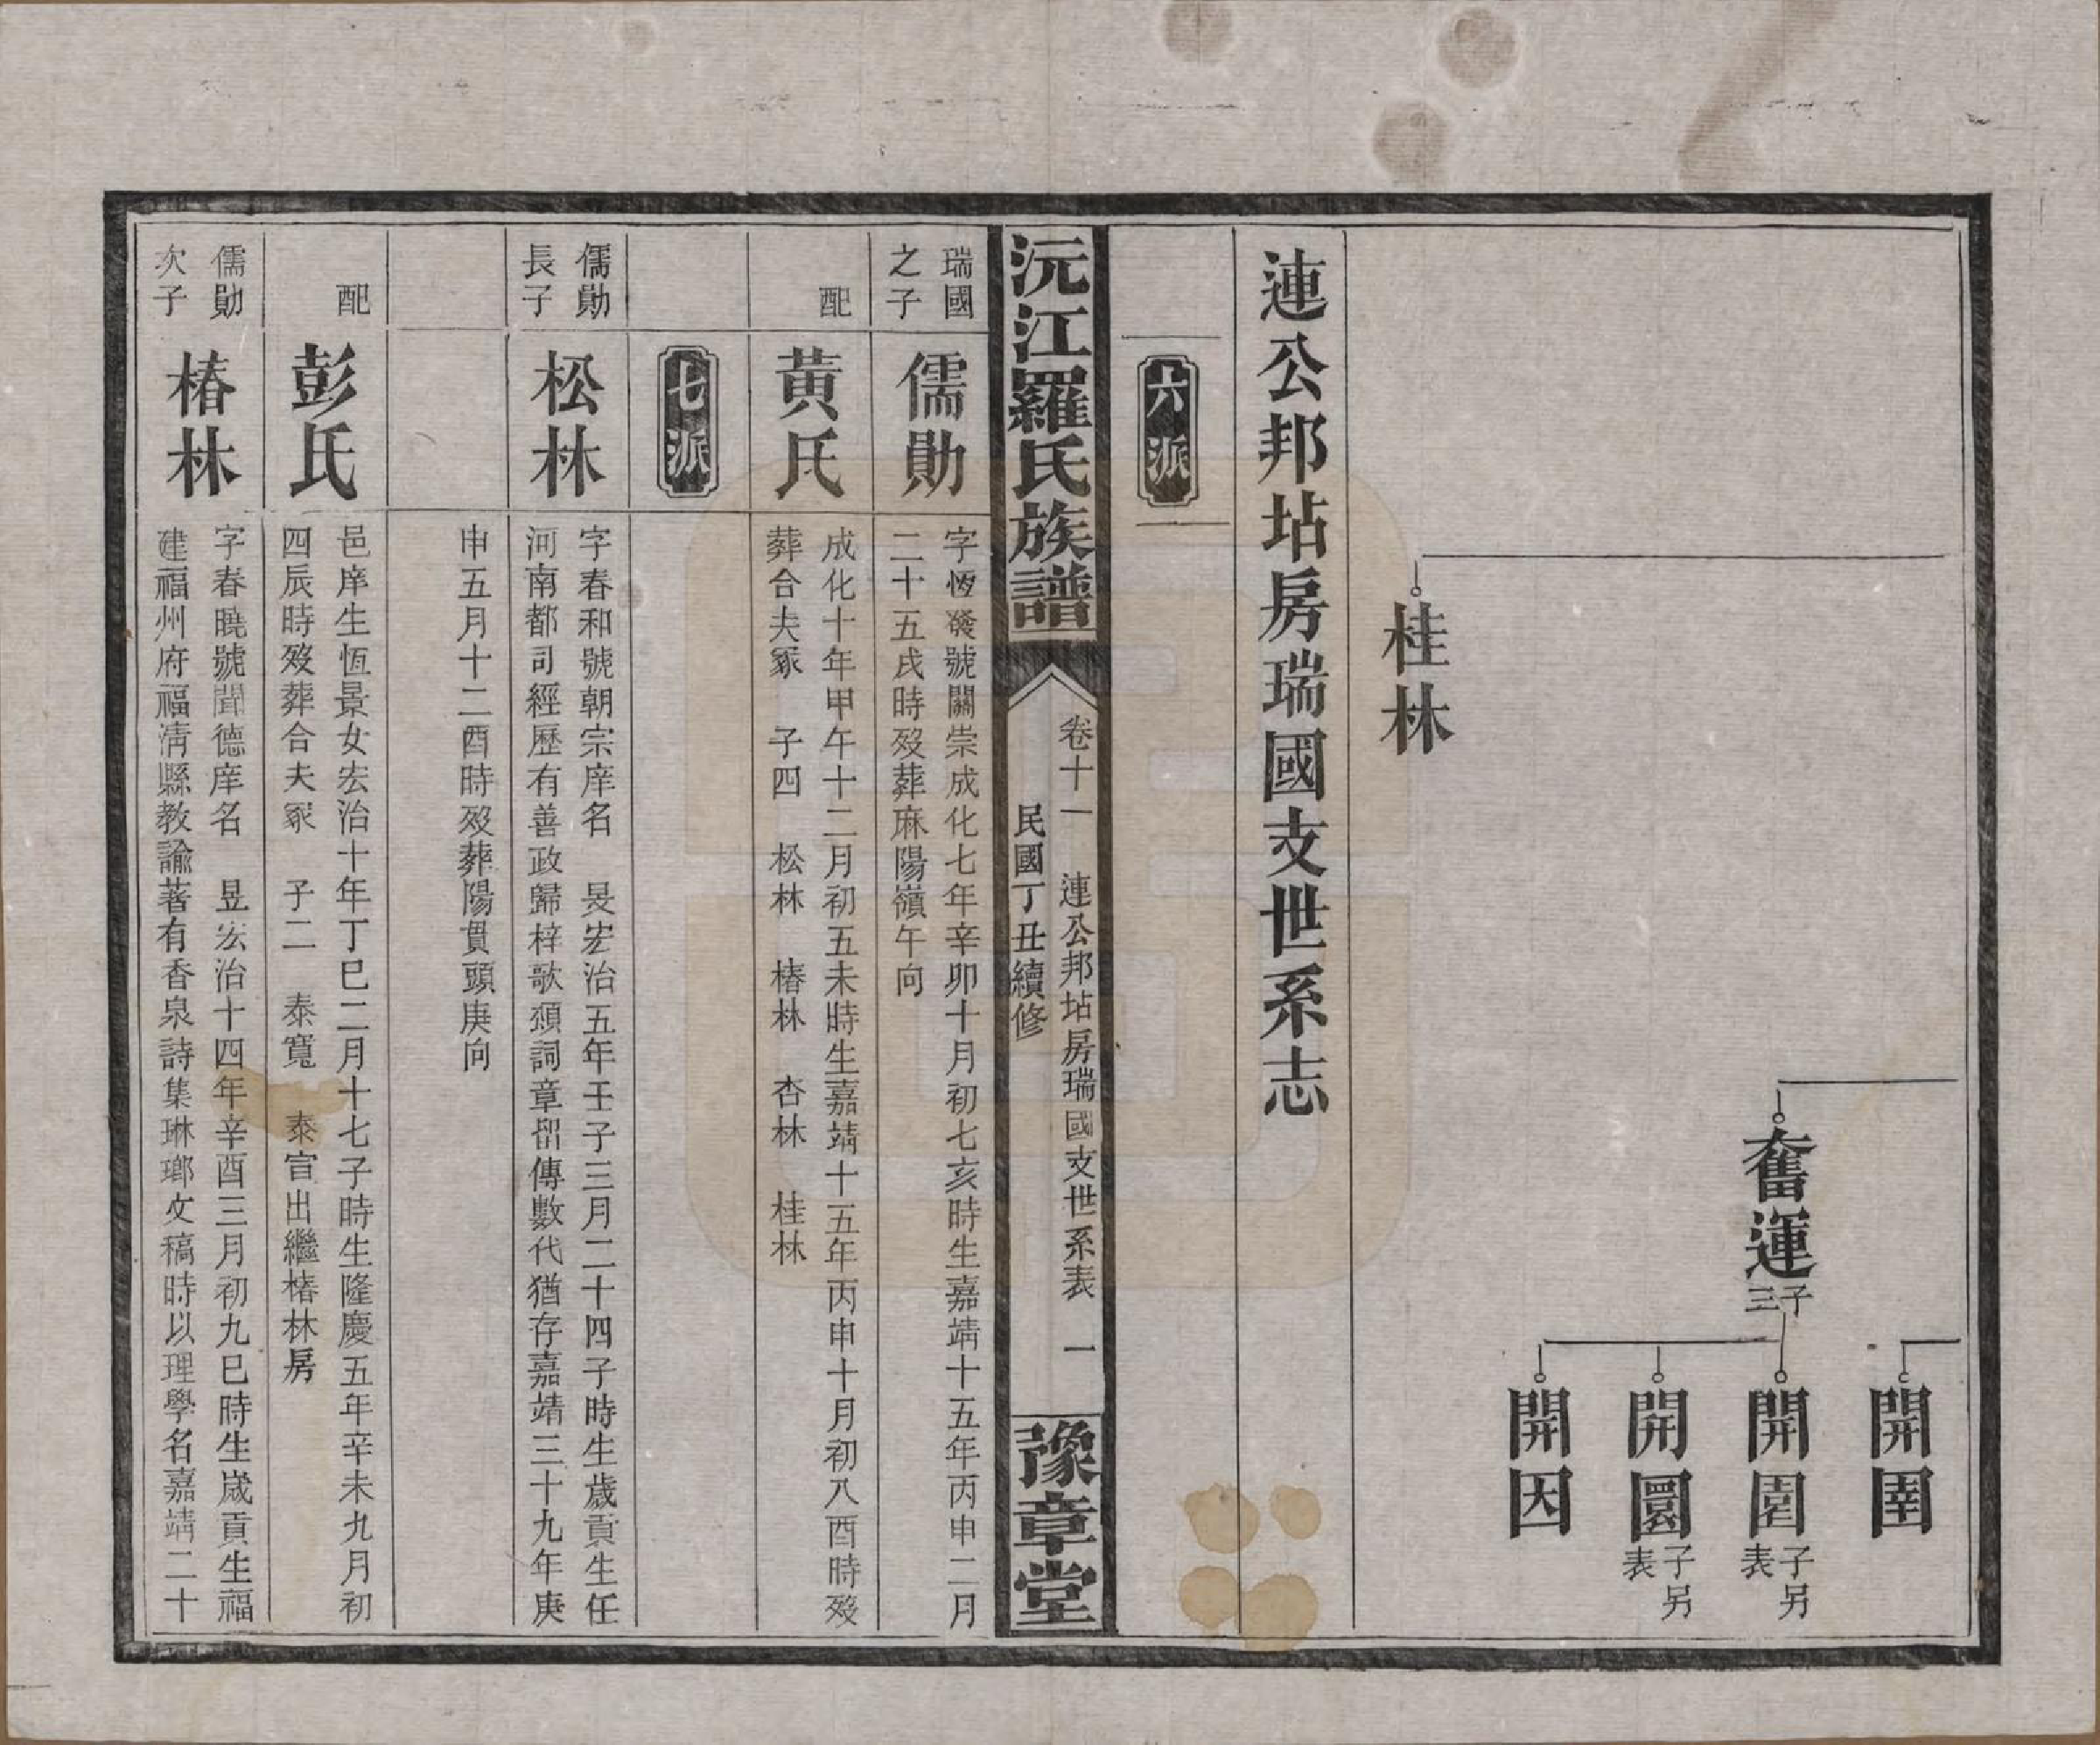 開
奮運
子三
開
子另表
開圜
子另表
開因
桂林
連公邦坫房瑞國支世系志
六派
沅江羅氏族譜
卷十一 連公邦坫房瑞國支世系表 一
民國丁丑續修
豫章堂
瑞國之子
儒勛
字恆發號關崇成化七年辛卯十月初七亥時生嘉靖十五年丙申二月
二十五戌時歿葬麻陽嶺午向
配
黃氏
成化十年甲午十二月初五未時生嘉靖十五年丙申十月初八酉時歿
葬合夫冢 子四 松林 椿林 杏林 桂林
七派
儒勛長子
松林
字春和號朝宗庠名 旻宏治五年壬子三月二十四子時生歲貢生任
河南都司經歷有善政歸梓歌頌詞章留傳數代猶存嘉靖三十九年庚
申五月十二酉時歿葬陽貫頭庚向
配
彭氏
邑庠生恆景女宏治十年丁巳二月十七子時生隆慶五年辛未九月初
四辰時歿葬合夫冢 子二 泰寬 泰官出繼椿林房
儒勛次子
椿林
字春曉號聞德庠名 昱宏治十四年辛酉三月初九巳時生歲貢生福
建福州府福清縣教諭著有香泉詩集琳瑯文稿時以理學名嘉靖二十